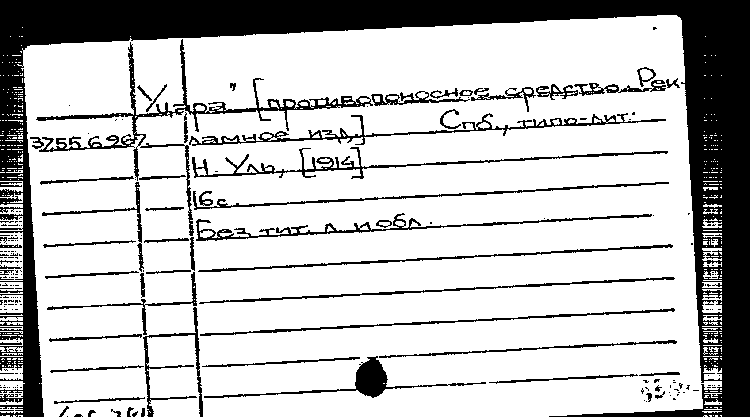 Уцара" [противопоносное средство. Рек-
3755.6.967. ламное изд.] Спб., типо-лит.
Н. Уль, [1914]
16с.
Без тит. л. и обл.